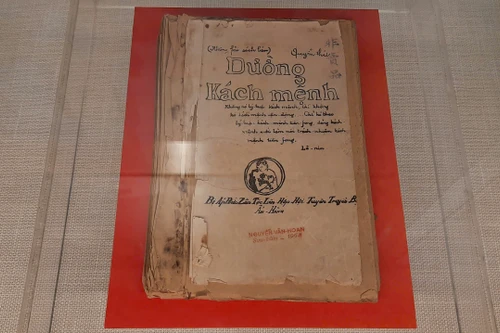 Quyển thứ
Đường
Kách mệnh
Không có lý luận kách mệnh, thì không
có kách mệnh vận động. Chỉ có theo
lý luận kách mệnh tiền fong, đảng kách
mệnh mới làm nổi trách nhiệm kách
mệnh tiền fong.
Lê-nin
Bị Áp Bức Dân Tộc Liên Hợp Hội Tuyên Truyền B.
NGUYỄN-VĂN-HOAN